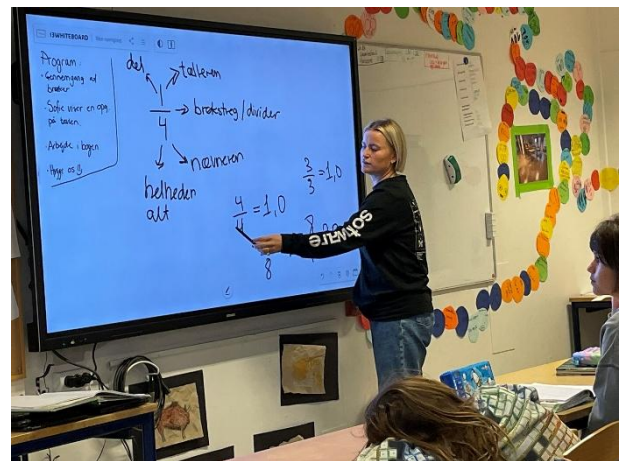 I3WHITEBOARD
Program:
· Gennemgang af
brøker
· Sofie viser en opg.
på tavlen.
· Arbejde i bogen
· Hygge os
del
tælleren
1
4
brøkstreg / divider
nævneren
helheden
alt
4
4 = 1,0
3
3 = 1,0
8
8
software